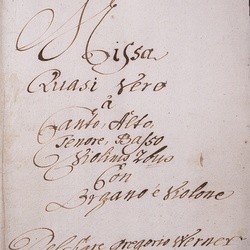 Missa
Quasi Vero
à
Canto, Alto,
Tenore, Basso
Violinis 2obus
Con
Organo è Violone
Del Sigre Gregorio Werner